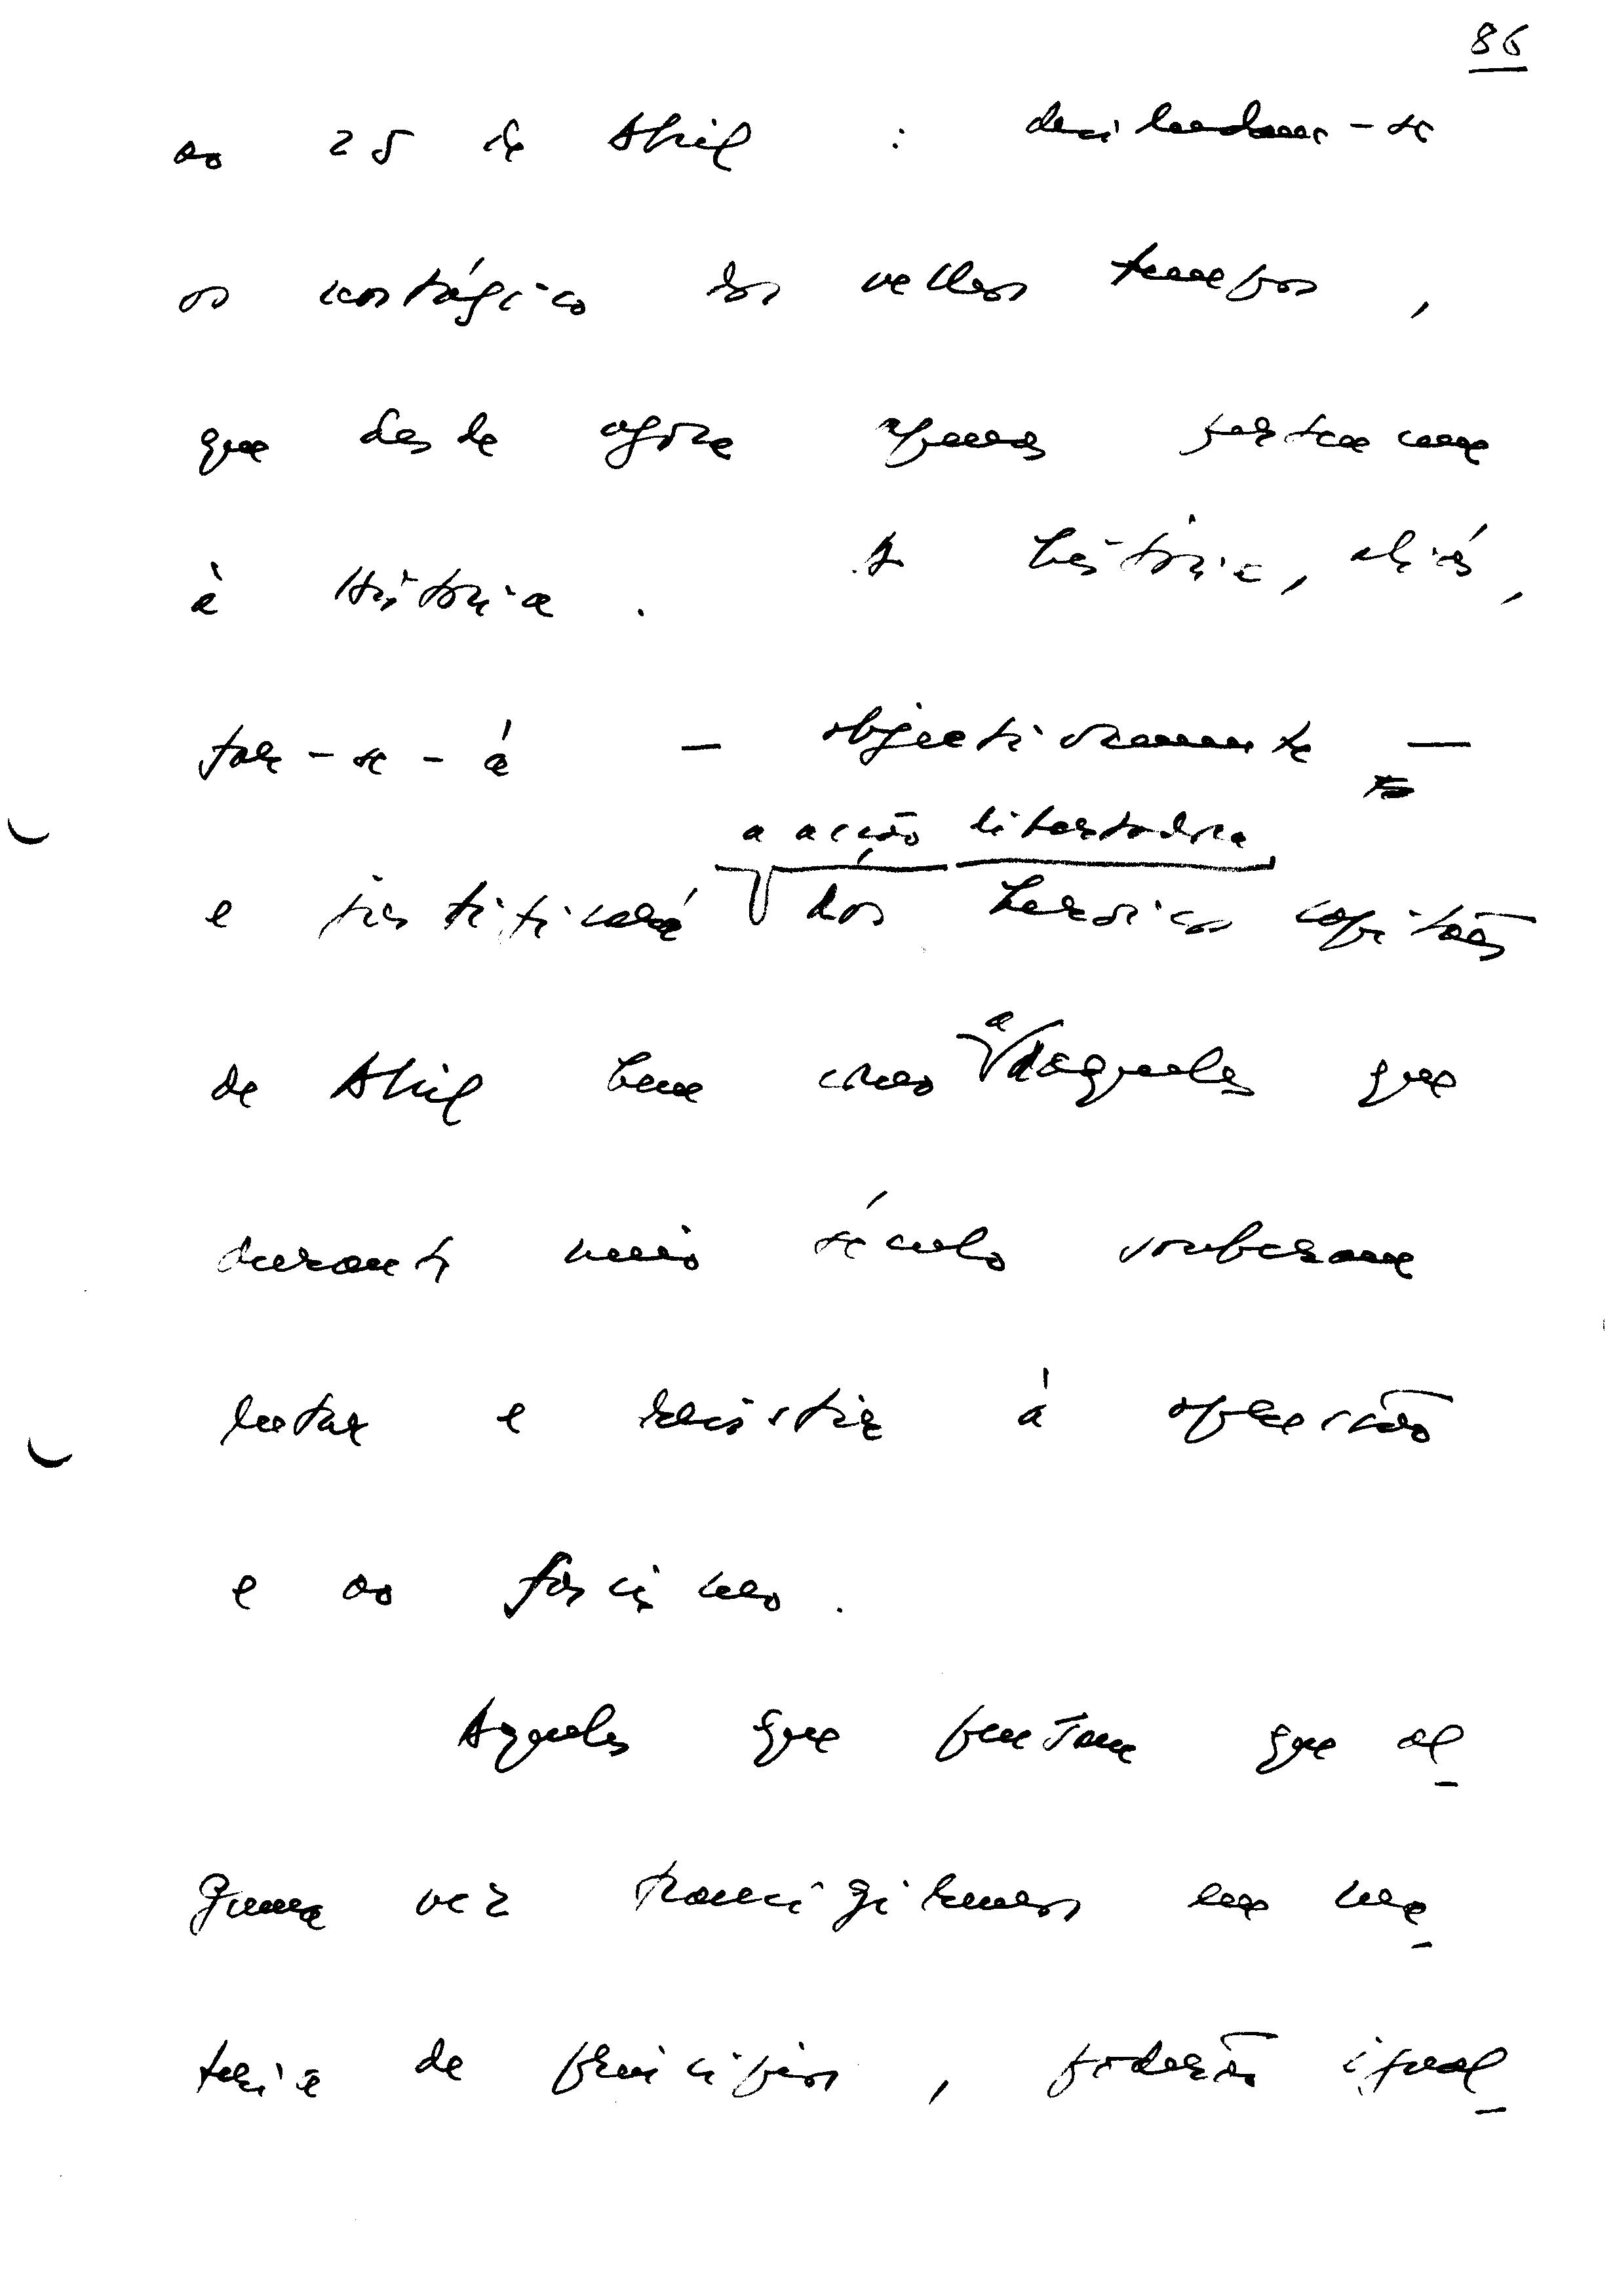 86
ao 25 de Abril : desiludam-se
os nostálgicos dos velhos tempos ,
que desde agora apenas pertencem
à História . A história, aliás,
far-se-á — objectivamente —
a acção libertadora
e justificará dos heroicos capitães
a
de Abril bem como daqueles que
durante meio século souberam
lutar e resistir à opressão
e ao fascismo .
Aqueles que pensam que al-
guma vez transigiremos em ma-
téria de princípios , poderão igual-